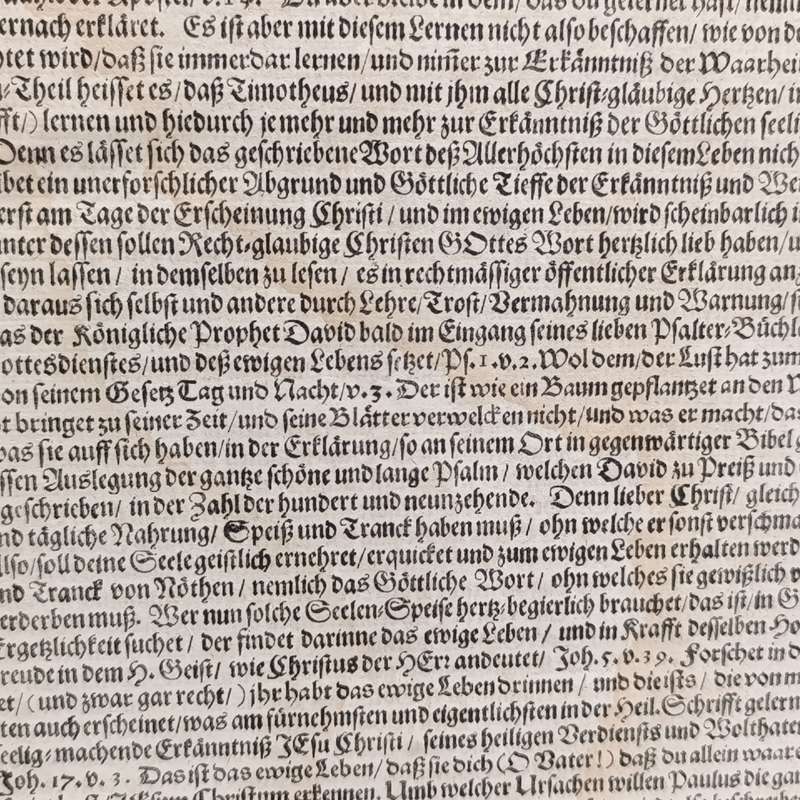 ernach erkläret. Es ist aber mit diesem Lernen nicht also beschaffen/ wie von de
htet wird/ daß sie immerdar lernen/ und nim̃er zur Erkänntniß der Waarhei
Theil heisset es/ daß Timotheus/ und mit jhm alle Christ-gläubige Hertzen/ i
fft/) lernen und hiedurch je mehr und mehr zur Erkänntniß der Göttlichen seeli
Denn es lässet sich das geschriebene Wort deß Allerhöchsten in diesem Leben nich
ibet ein unerforschlicher Abgrund und Göttliche Tieffe der Erkänntniß und We
erst am Tage der Erscheinung Christi/ und im ewigen Leben/ wird scheinbarlich
unter dessen sollen Recht-glaubige Christen GOttes Wort hertzlich lieb haben/ u
seyn lassen/ in demselben zu lesen/ es in rechtmässiger öffentlicher Erklärung an
daraus sich selbst und andere durch Lehre/ Trost/ Vermahnung und Warnung/
as der Königliche Prophet David bald im Eingang seines lieben Psalter-Büchle
ottesdienstes/ und deß ewigen Lebens setzet/ Ps. 1. v. 2. Wol dem/ der Lust hat zum
on seinem Gesetz Tag und Nacht/ v. 3. Der ist wie ein Baum gepflantzet an den
t bringet zu seiner Zeit/ und seine Blätter verwelcken nicht/ und was er macht/ da
was sie auff sich haben/ in der Erklärung/ so an seinem Ort in gegenwärtiger Bibel
ssen Auslegung der gantze schöne und lange Psalm/ welchen David zu Preiß und
geschrieben/ in der Zahl der hundert und neunzehende. Denn lieber Christ/ gleich
nd tägliche Nahrung/ Speiß und Tranck haben muß/ ohn welche er sonst verschma
Also/ soll deine Seele geistlich ernehret/ erquicket und zum ewigen Leben erhalten werd
nd Tranck von Nöthen/ nemlich das Göttliche Wort/ ohn welches sie gewißlich
erderben muß. Wer nun solche Seelen-Speise hertz-begierlich brauchet/ das ist/ in G
Ergetzlichkeit suchet/ der findet darinne das ewige Leben/ und in Krafft desselben Ho
reude in dem H. Geist/ wie Christus der HErr andeutet/ Joh. 5. v. 39. Forschet in d
et/ (und zwar gar recht/) jhr habt das ewige Leben drinnen/ und die ists/ die von m
ten auch erscheinet/ was am fürnehmsten und eigentlichsten in der Heil. Schrifft gelern
seelig-machende Erkänntniß JEsu Christi/ seines heiligen Verdiensts und Wolthaten
Joh. 17. v. 3. Das ist das ewige Leben/ daß sie dich (O Vater!) daß du allein waare
Christum erkennen. Umb welcher Ursachen willen Paulus die gan